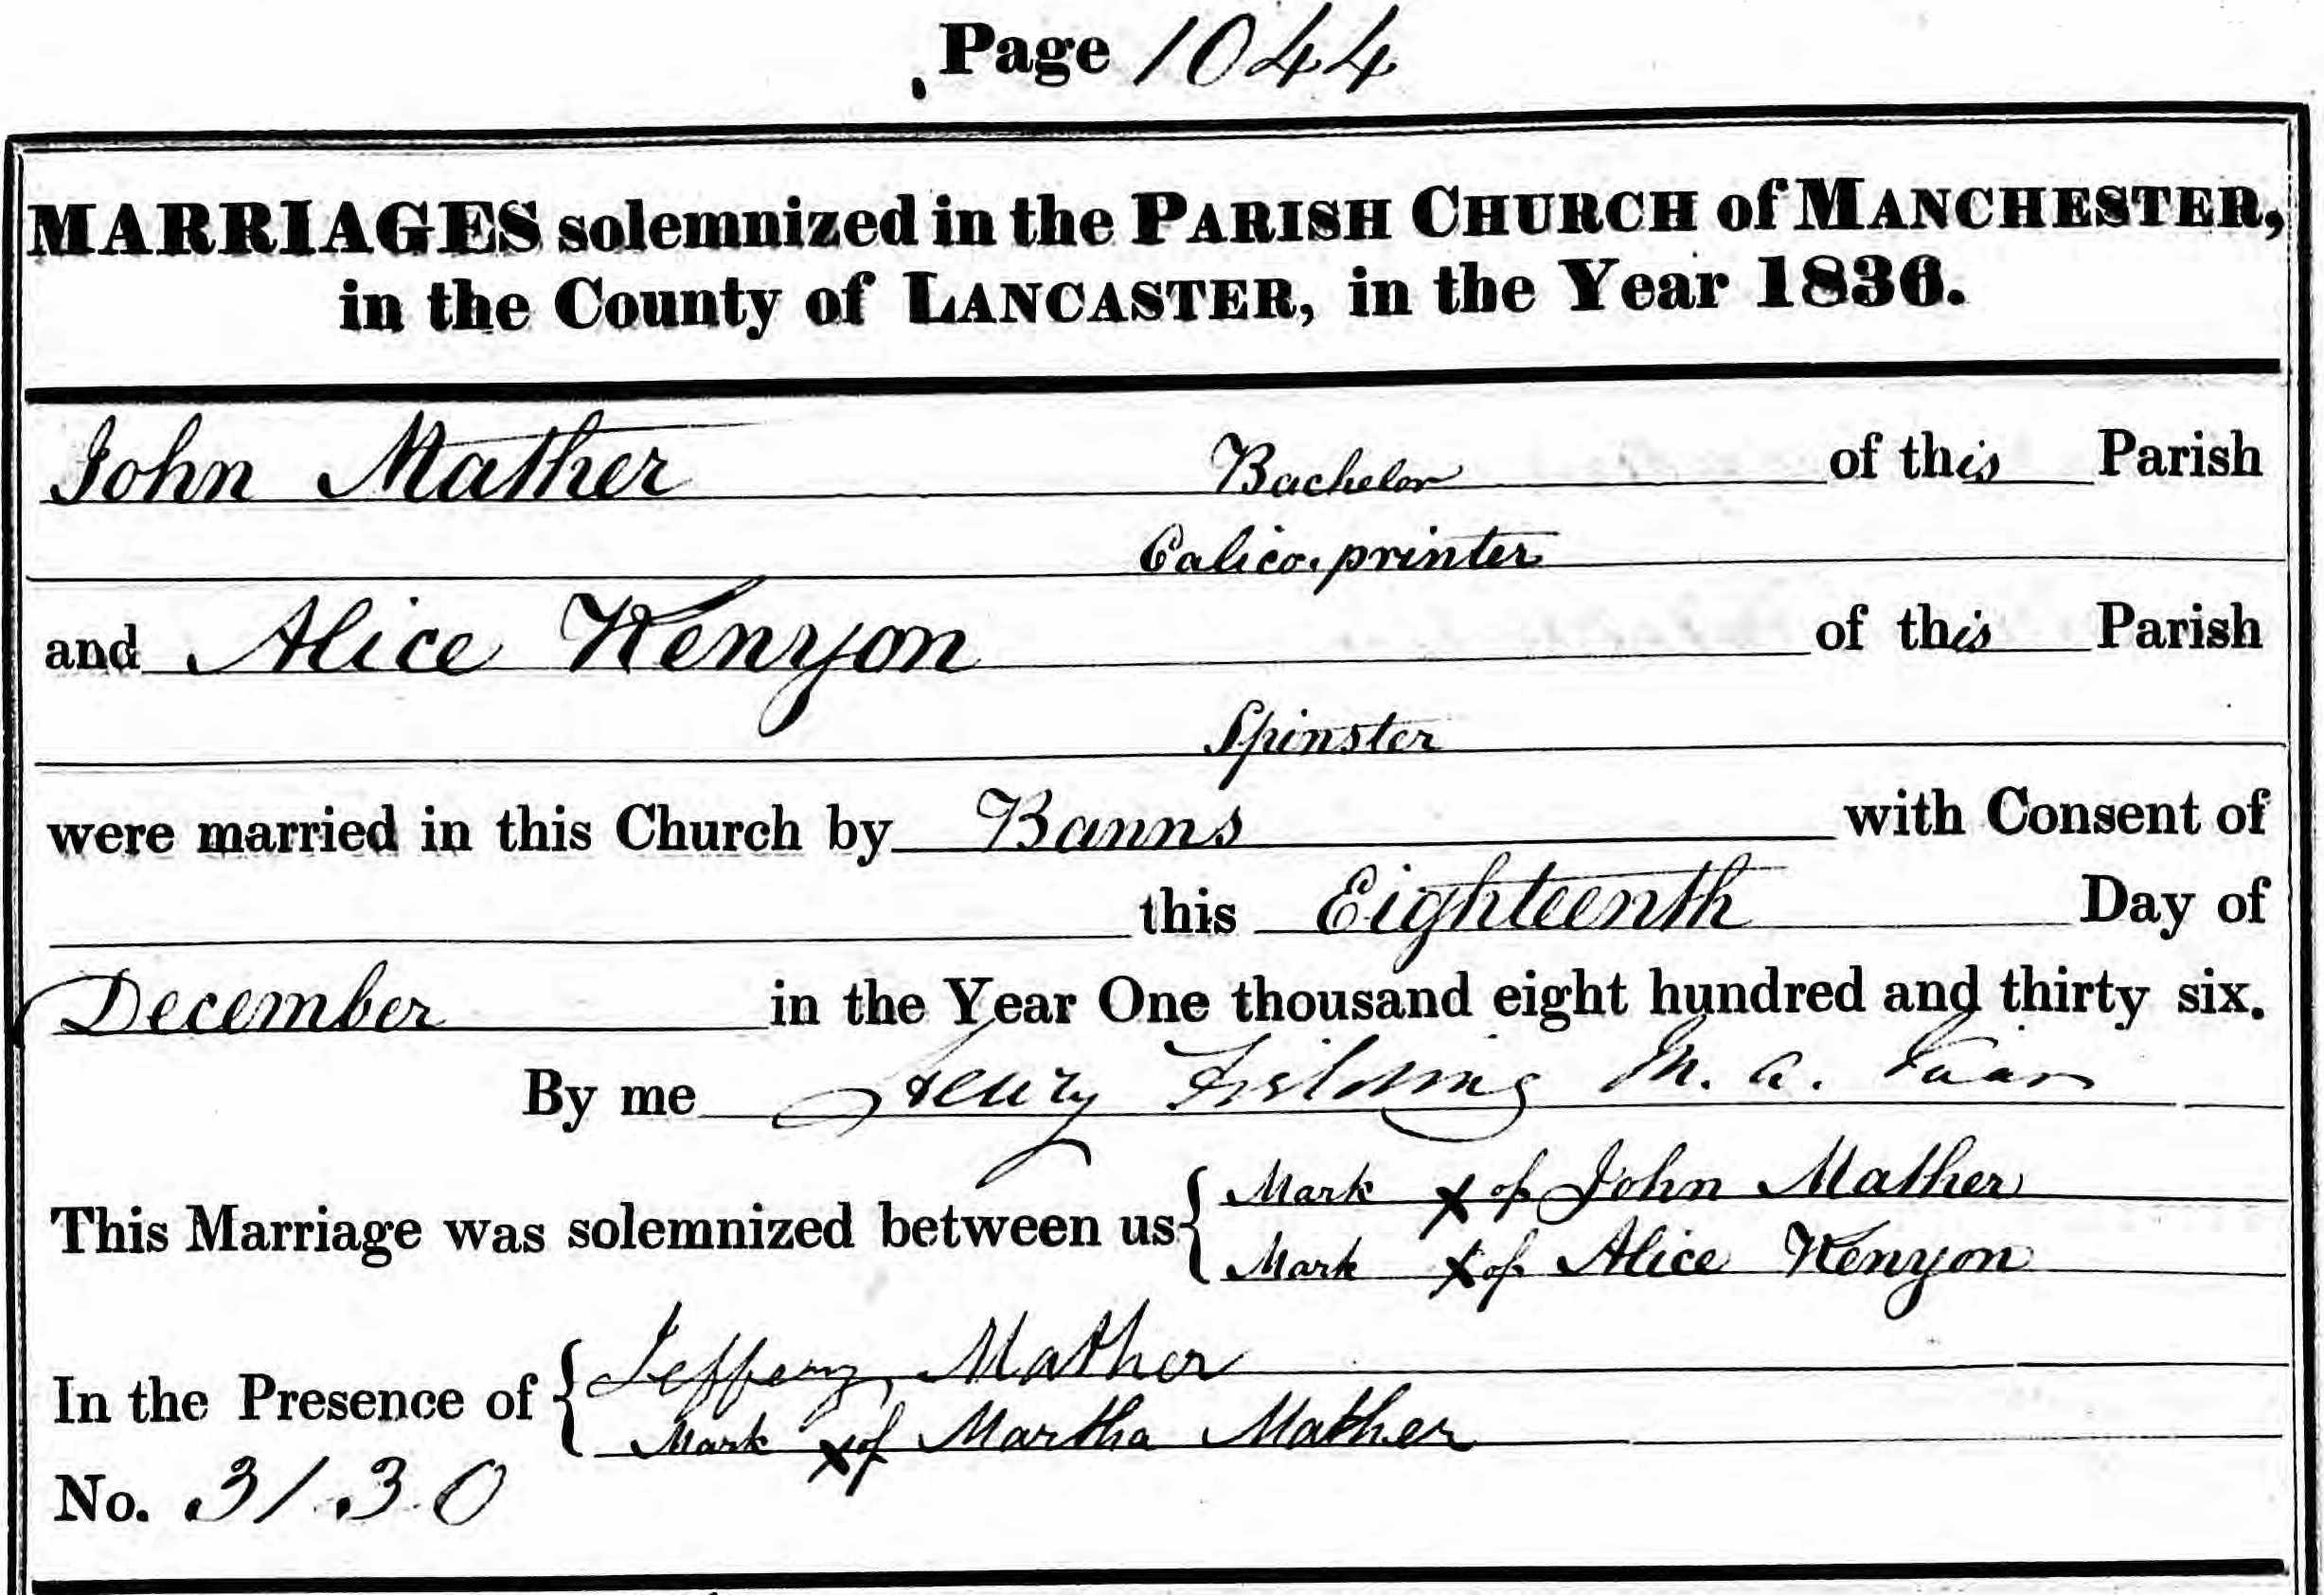 Page 1044
MARRIAGES solemnized in the PARISH CHURCH of MANCHESTER,
in the County of LANCASTER, in the Year 1836.
John Mather Bachelor of this Parish
Calico printer
and Alice Kenyon of this Parish
Spinster
were married in this Church by Banns with Consent of
this Eighteenth Day of
December in the Year One thousand eight hundred and thirty six.
By me Henry Fielding M. A.
This Marriage was solemnized between us { Mark X of John Mather
Mark X of Alice Kenyon
In the Presence of { Jeffery Mather
Mark X of Martha Mather
No. 3130